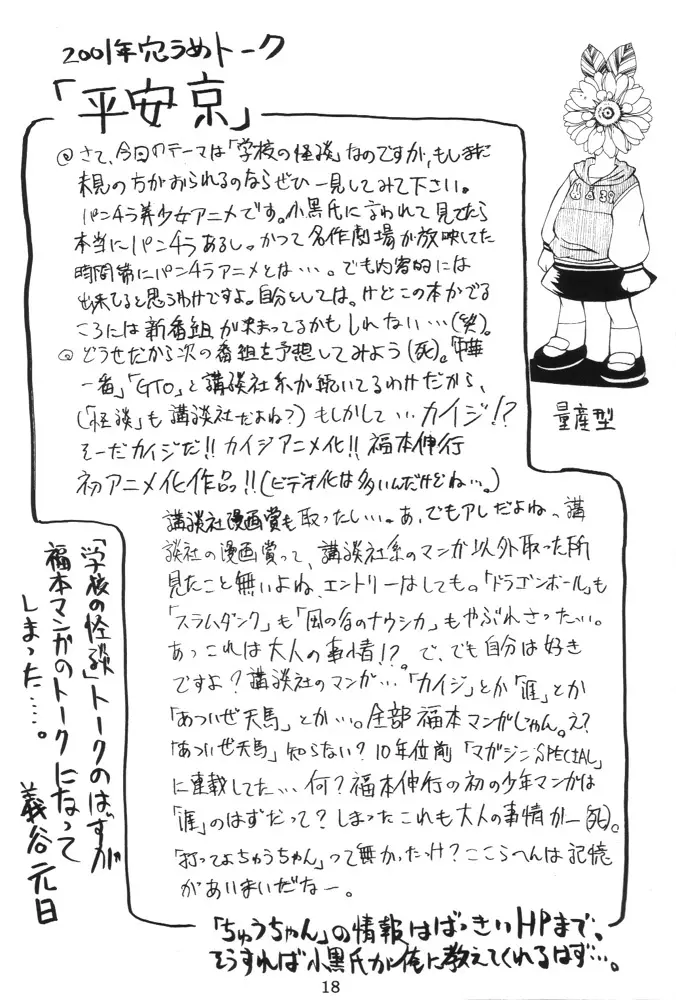 2001年穴うめトーク
「平安京」
◎さて、今回のテーマは「学校の怪談」なのですが、もしまだ
未見の方がおられるのならぜひ一見してみて下さい。
パンチラ美少女アニメです。小黒氏に言われて見てたら
本当にパンチラあるし。かつて名作劇場が放映してた
時間帯にパンチラアニメとは…。でも内容的には
出来てると思うわけですよ。自分としては。けどこの本がでる
ころには新番組が決まってるかもしれない…(笑)。
◎どうせだから次の番組を予想してみよう(死)。「中華
一番」「GTO」と講談社系が続いてるわけだから、
(「怪談」も講談社だよね?)もしかして…カイジ!?
そーだカイジだ!!カイジアニメ化!!福本伸行
初アニメ化作品っ!!(ビデオ化は多いんだけどね…。)
講談社漫画賞も取ったしい…。あ、でもアレだよね、講
談社の漫画賞って、講談社系のマンガ以外取った所
見たこと無いよね、エントリーはしても。「ドラゴンボール」も
「スラムダンク」も「風の谷のナウシカ」もやぶれさったい…。
あっこれは大人の事情!?で、でも自分は好き
ですよ?講談社のマンガ…「カイジ」とか「涯」とか
「あついぜ天馬」とか…。全部福本マンガじゃん。え?
「あついぜ天馬」知らない?10年位前「マガジンSPECIAL」
に連載してた…何?福本伸行の初の少年マンガは
「涯」のはずだって?しまったこれも大人の事情がー(死)。
「打ってよちゅうちゃん」って無かったっけ?ここらへんは記憶
があいまいだなー。
「ちゅうちゃん」の情報はばっきいHPまで。
そうすれば小黒氏が俺に教えてくれるはず…。
「学校の怪談」トークのはずが
福本マンガのトークになって
しまった…。
義谷元日
量産型
18